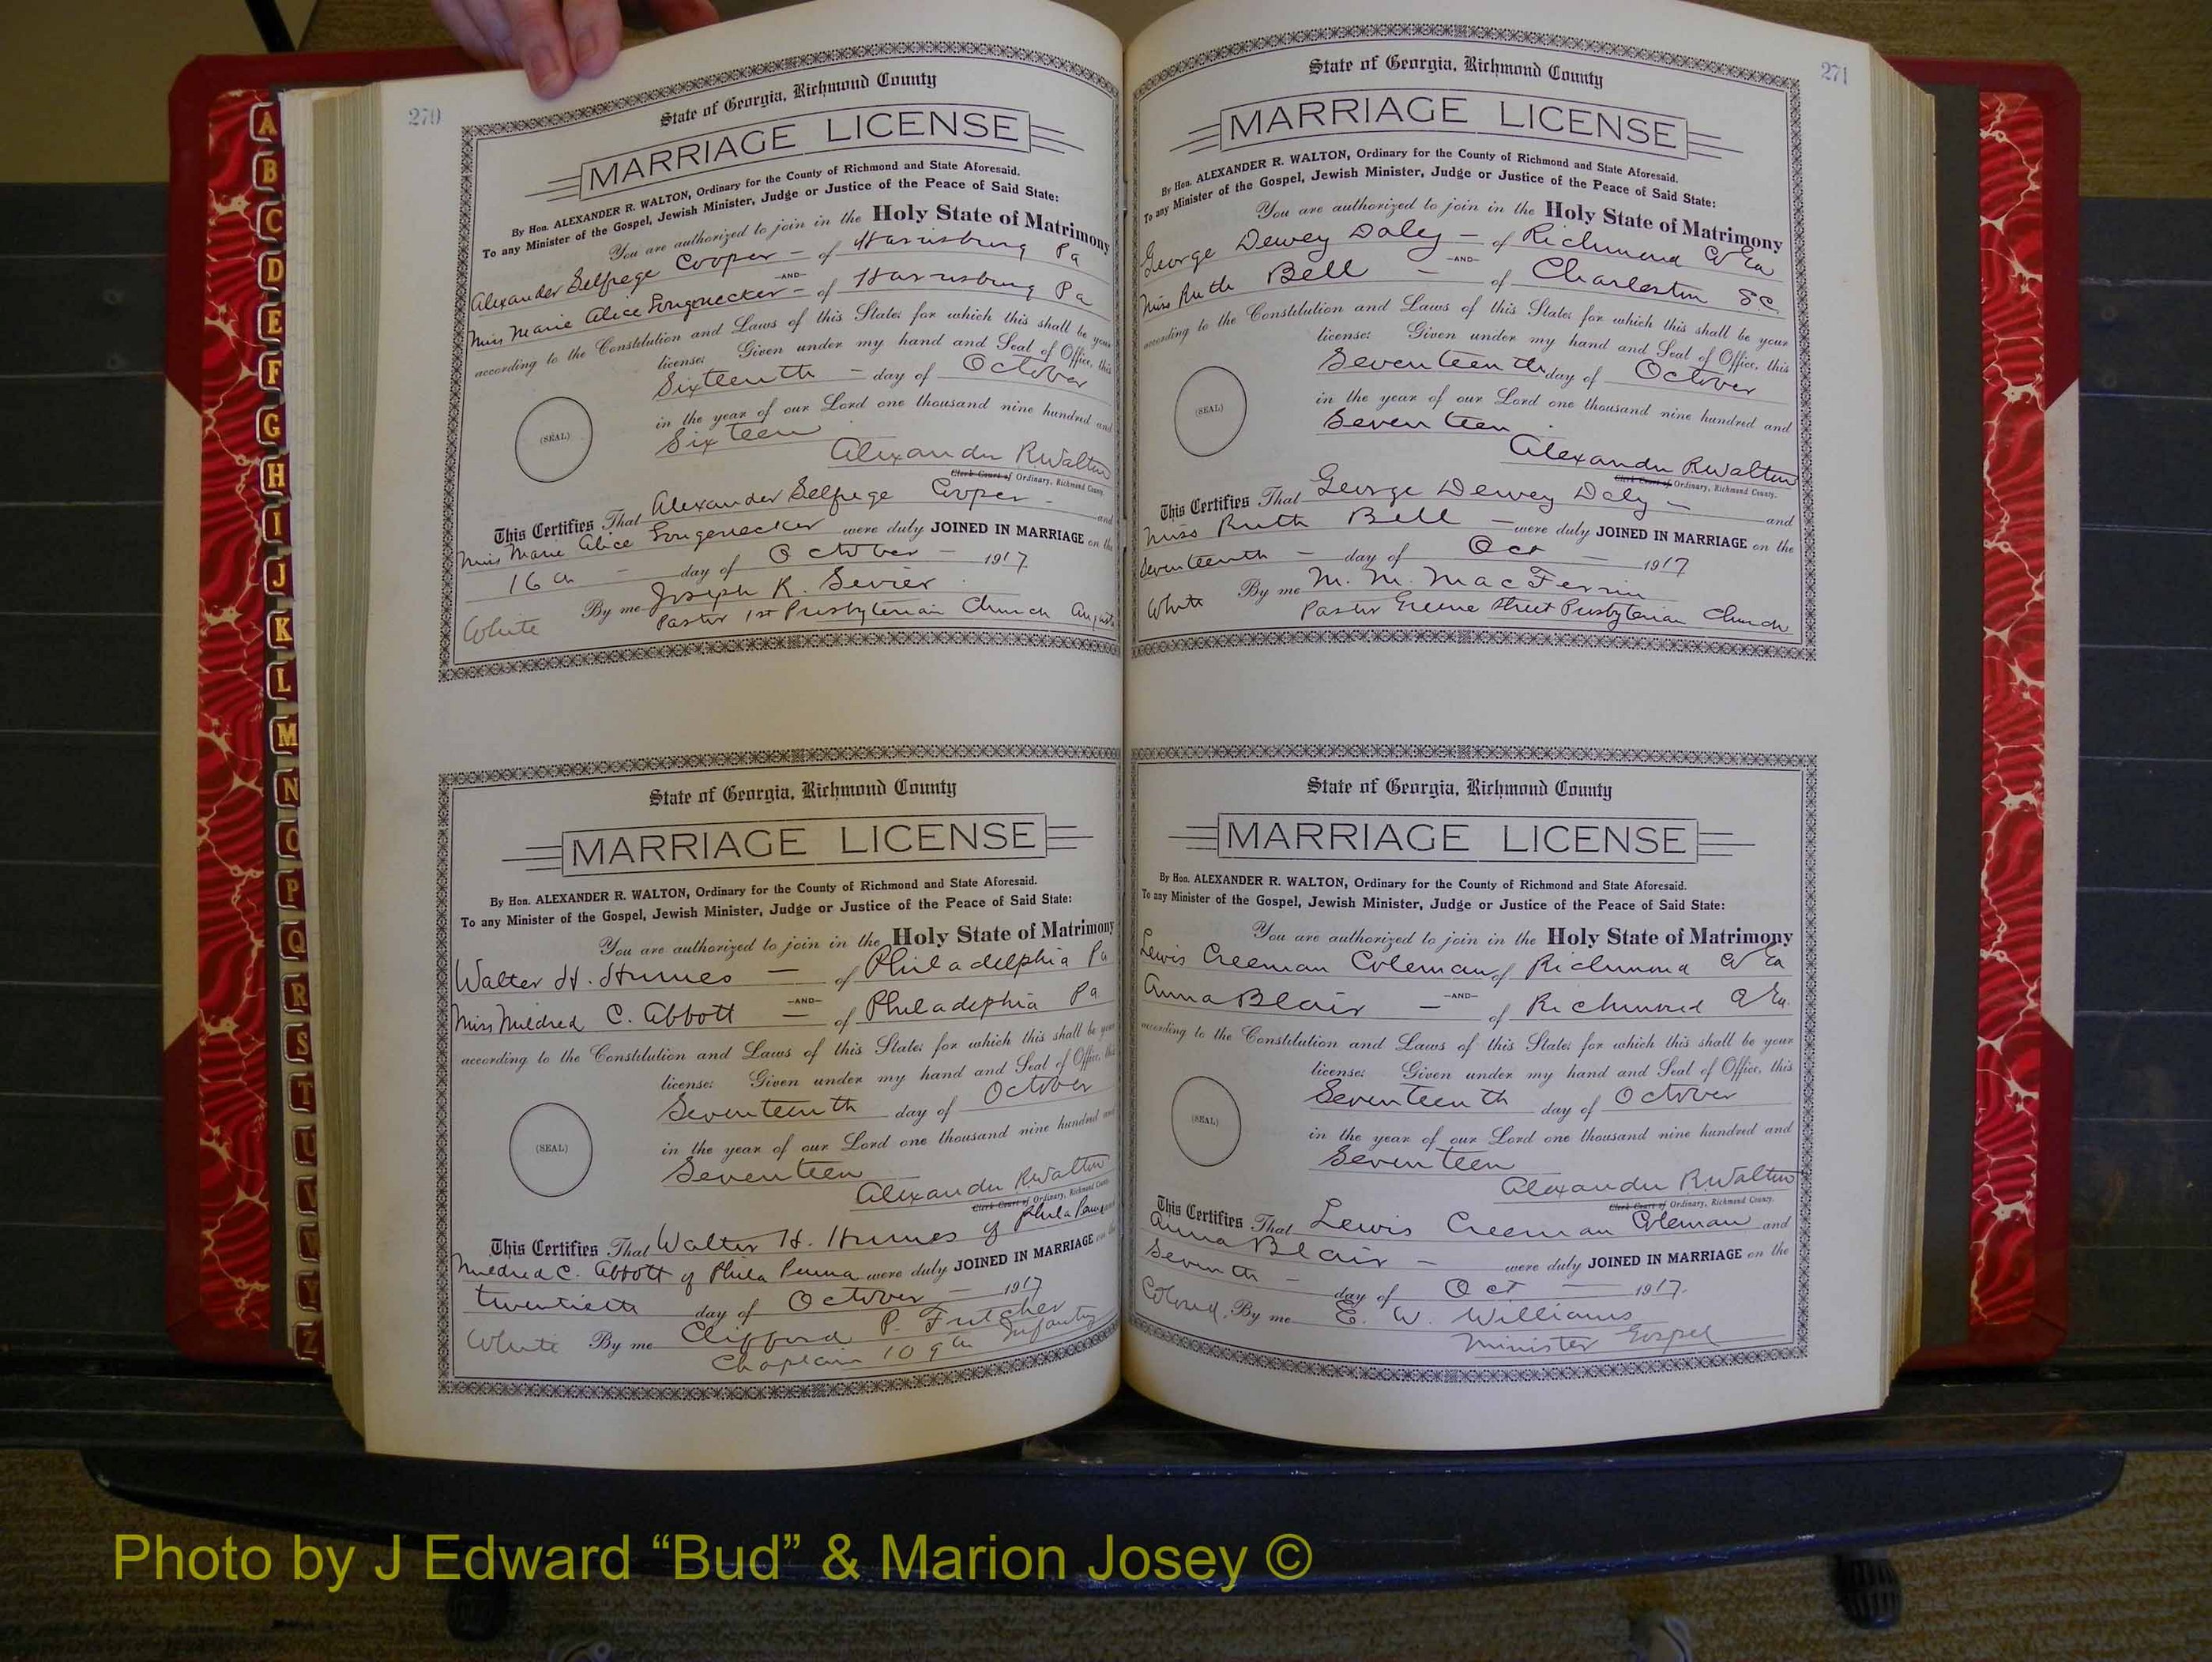 270
State of Georgia, Richmond County
MARRIAGE LICENSE
By Hon. ALEXANDER R. WALTON, Ordinary for the County of Richmond and State Aforesaid.
To any Minister of the Gospel, Jewish Minister, Judge or Justice of the Peace of Said State:
You are authorized to join in the Holy State of Matrimony
Alexander Selfrege Cooper - of Harrisburg Pa
-AND-
Miss Marie Alice Longenecker - of Harrisburg Pa
according to the Constitution and Laws of this State; for which this shall be your
license; Given under my hand and Seal of Office, this
Sixteenth - day of October
in the year of our Lord one thousand nine hundred and
Sixteen
(SEAL)
Alexander R Walton
Clerk Court of Ordinary, Richmond County.
This Certifies That Alexander Selfrege Cooper - and
Miss Marie Alice Longenecker were duly JOINED IN MARRIAGE on the
16th - day of October - 1917
White By me Joseph R. Sevier
Pastor 1st Presbyterian Church Augusta
State of Georgia, Richmond County
MARRIAGE LICENSE
By Hon. ALEXANDER R. WALTON, Ordinary for the County of Richmond and State Aforesaid.
To any Minister of the Gospel, Jewish Minister, Judge or Justice of the Peace of Said State:
You are authorized to join in the Holy State of Matrimony
Walter H. Humes - of Philadelphia Pa
-AND-
Miss Mildred C. Abbott - of Philadephia Pa
according to the Constitution and Laws of this State; for which this shall be your
license; Given under my hand and Seal of Office, this
Seventeenth day of October
in the year of our Lord one thousand nine hundred and
Seventeen
(SEAL)
Alexander R Walton
Clerk Court of Ordinary, Richmond County.
This Certifies That Walter H. Humes of Phila Penna and
Mildred C. Abbott of Phila Penna were duly JOINED IN MARRIAGE on the
twentieth day of October - 1917
White By me Clifford P. Futcher
Chaplain 109th Infantry
271
State of Georgia, Richmond County
MARRIAGE LICENSE
By Hon. ALEXANDER R. WALTON, Ordinary for the County of Richmond and State Aforesaid.
To any Minister of the Gospel, Jewish Minister, Judge or Justice of the Peace of Said State:
You are authorized to join in the Holy State of Matrimony
George Dewey Daley - of Richmond Co Ga
-AND-
Miss Ruth Bell - of Charleston S.C.
according to the Constitution and Laws of this State; for which this shall be your
license; Given under my hand and Seal of Office, this
Seventeenth day of October
in the year of our Lord one thousand nine hundred and
Seventeen
(SEAL)
Alexander R Walton
Clerk Court of Ordinary, Richmond County.
This Certifies That George Dewey Daly - and
Miss Ruth Bell - were duly JOINED IN MARRIAGE on the
Seventeenth - day of Oct - 1917
White By me M. M. MacFerrin
Pastor Greene Street Presbyterian Church
State of Georgia, Richmond County
MARRIAGE LICENSE
By Hon. ALEXANDER R. WALTON, Ordinary for the County of Richmond and State Aforesaid.
To any Minister of the Gospel, Jewish Minister, Judge or Justice of the Peace of Said State:
You are authorized to join in the Holy State of Matrimony
Lewis Creeman Coleman of Richmond Co Ga
-AND-
Anna Blair - of Richmond Co Ga.
according to the Constitution and Laws of this State; for which this shall be your
license; Given under my hand and Seal of Office, this
Seventeenth day of October
in the year of our Lord one thousand nine hundred and
Seventeen
(SEAL)
Alexander R Walton
Clerk Court of Ordinary, Richmond County.
This Certifies That Lewis Creeman Coleman and
Anna Blair - were duly JOINED IN MARRIAGE on the
Seventh - day of Oct - 1917.
Colored. By me E. W. Williams
Minister Gospel
A
B
C
D
E
F
G
H
I
J
K
L
M
N
O
P
Q
R
S
T
U
V
W
Y
Z
Photo by J Edward “Bud” & Marion Josey ©